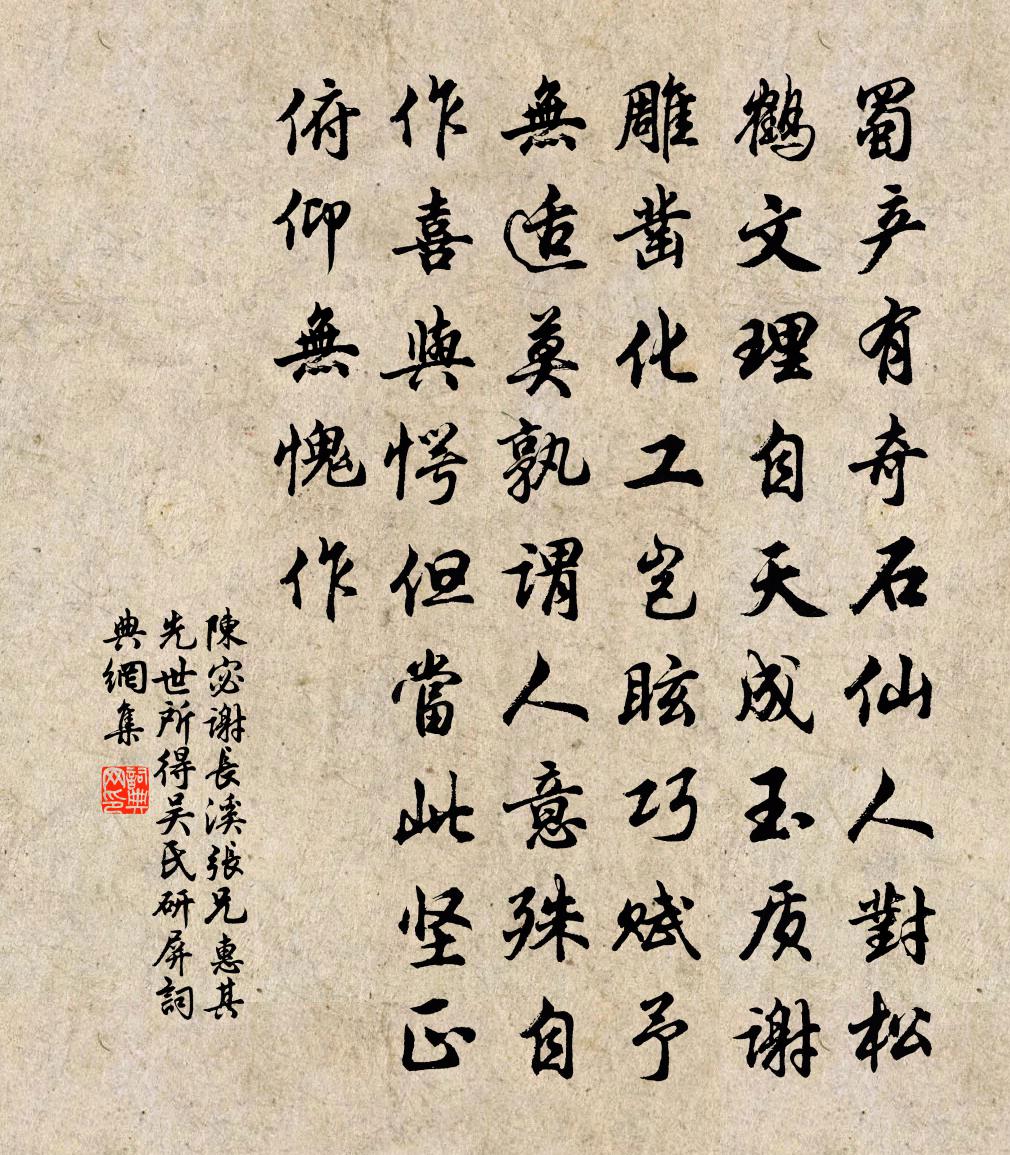 蜀产有奇石仙人對松
鶴文理自天成玉质謝
雕凿化工岂眩巧赋予
無适莫孰謂人意殊自
作喜與愕但當此坚正
俯仰無愧作
陳宓謝長溪張兄惠其
先世所得吴氏研屏詞
典網集
詞典
网印